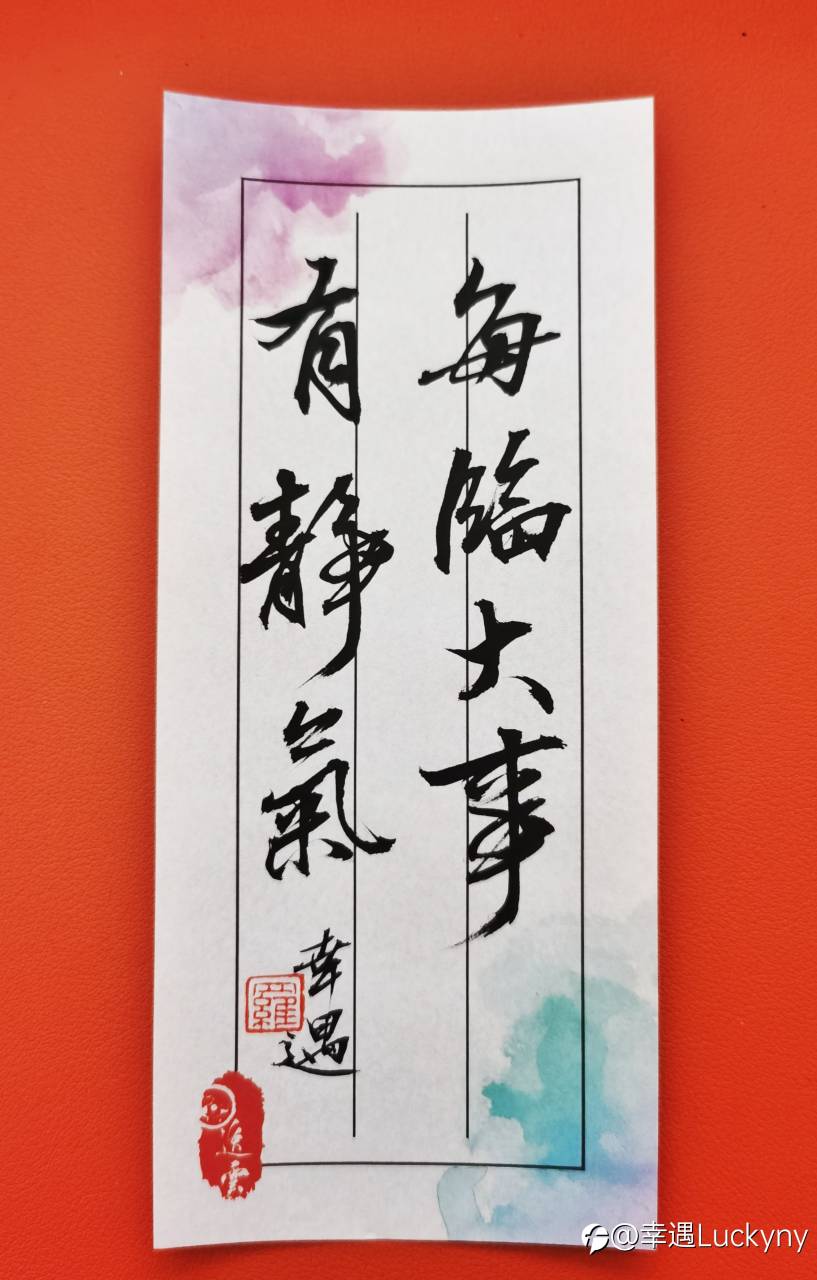 每臨大事
有靜氣
幸遇
羅
追雲
@幸遇Luckyny